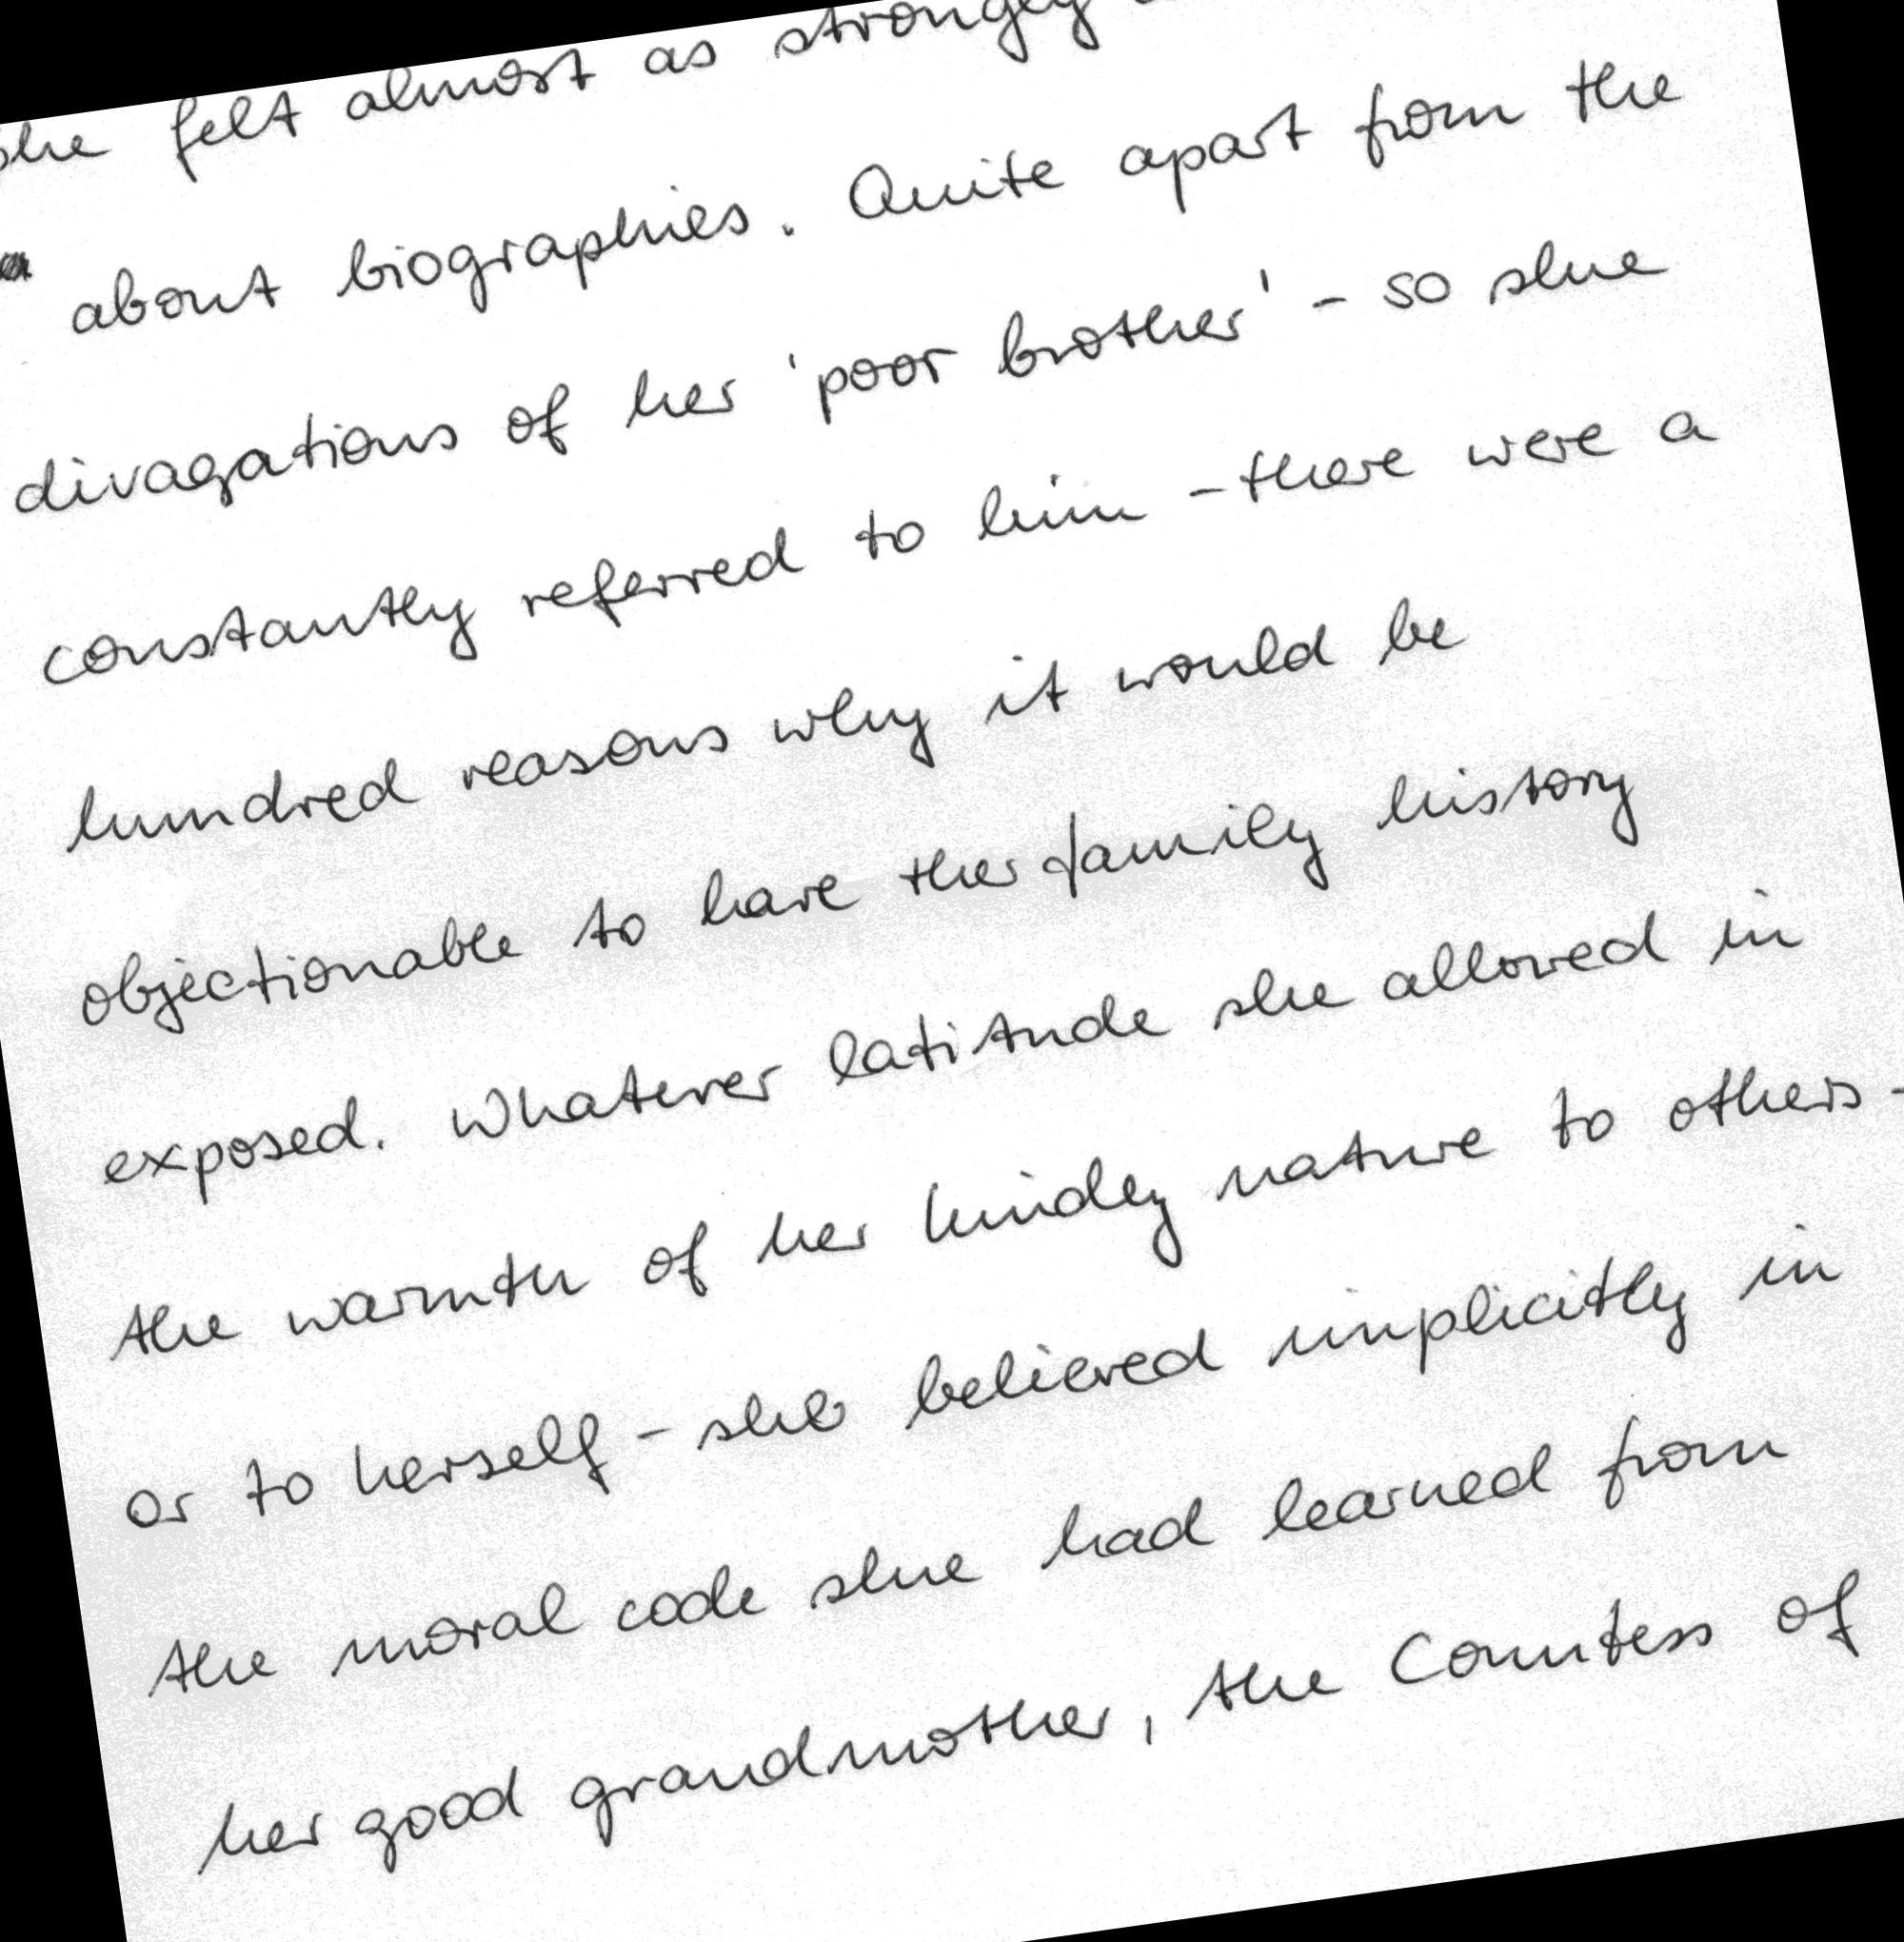 she felt almost as strongly
about biographies. Quite apart from the
divagations of her 'poor brother' - so she
constantly referred to him - there were a
hundred reasons why it would be
objectionable to have the family history
exposed. Whatever latitude she allowed in
the warmth of her kindly nature to others -
or to herself - she believed implicitly in
the moral code she had learned from
her good grandmother, the Countess of